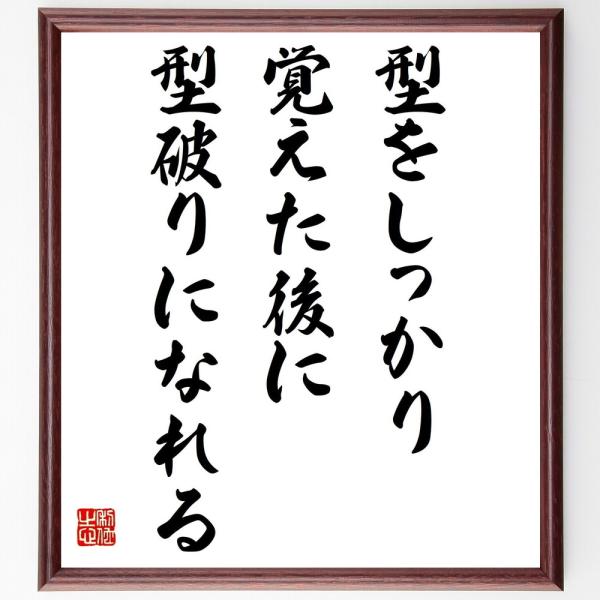 型をしっかり
覚えた後に
型破りになれる